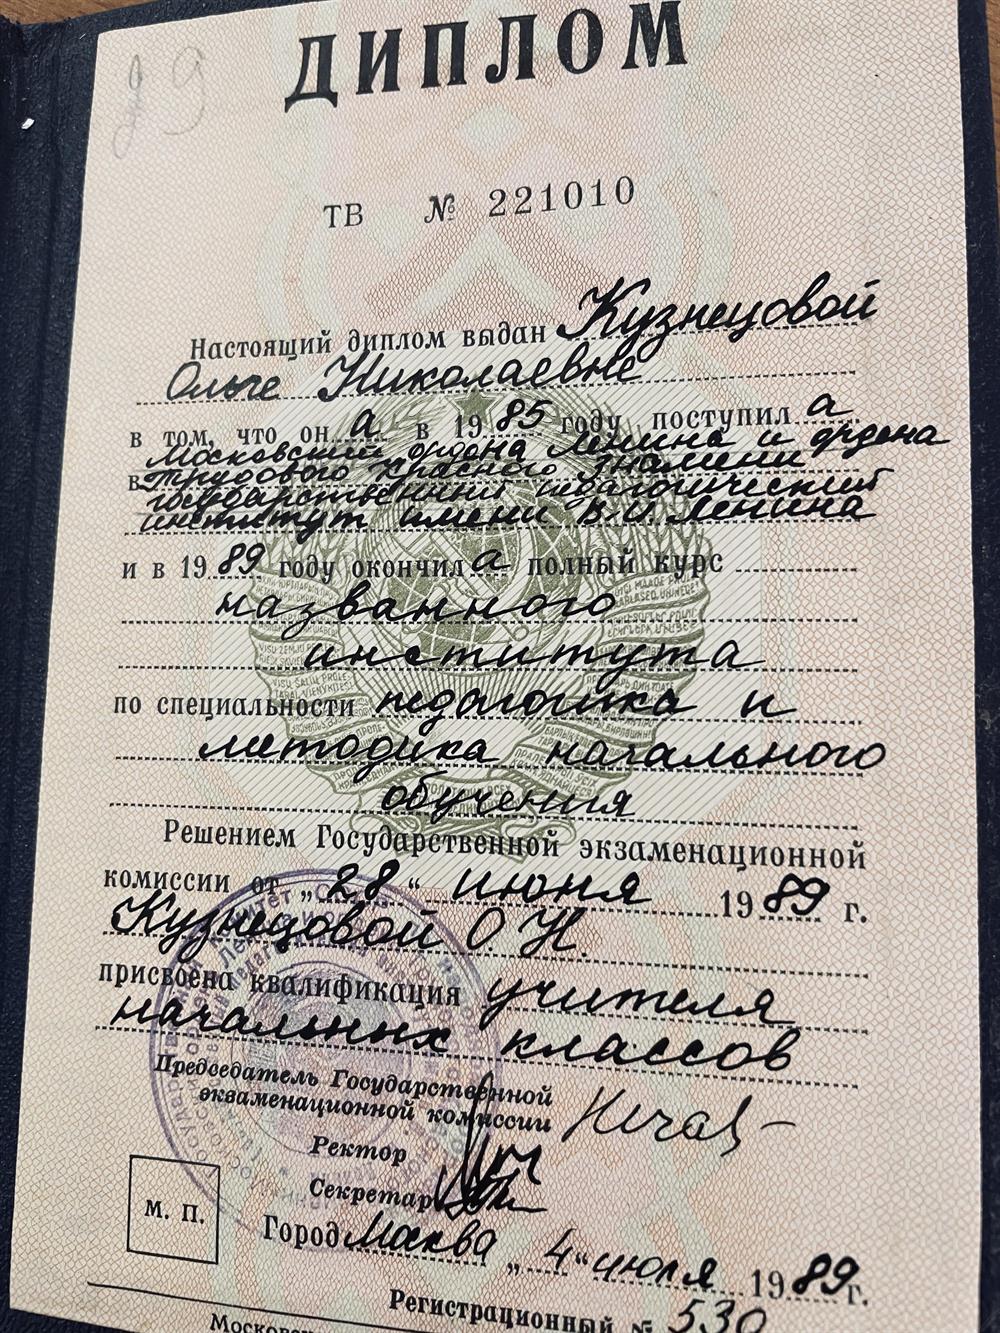 ДИПЛОМ
ТВ № 221010
Настоящий диплом выдан Кузнецовой
Ольге Николаевне
в том, что он а в 1985 году поступил а
Московский ордена Ленина и ордена
в Трудового Красного Знамени
государственный педагогический
институт имени В.И. Ленина
и в 1989 году окончил а полный курс
названного
института
по специальности педагогика и
методика начального
обучения
Решением Государственной экзаменационной
комиссии от „28“ июня 1989 г.
Кузнецовой О.Н.
присвоена квалификация учителя
начальных классов
Председатель Государственной
экзаменационной комиссии
Ректор
Секретарь
М. П.
Город Москва „4“ июля 1989 г.
Регистрационный № 530